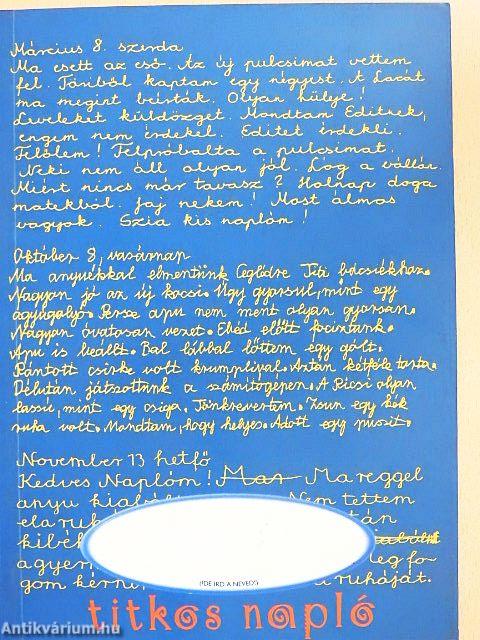 Március 8. szerda
Ma esett az eső. Az új pulcsimat vettem
fel. Töriből kaptam egy négyest. A Lacát
ma megint beírták. Olyan hülye!
Leveleket küldözget. Mondtam Editnek,
engem nem érdekel. Editet érdekli.
Felőlem! Felpróbálta a pulcsimat.
Neki nem áll olyan jól. Lóg a vállán.
Miért nincs már tavasz? Holnap doga
matekból. Jaj nekem! Most álmos
vagyok. Szia kis naplóm!
Október 8, vasárnap
Ma anyuékkal elmentünk Ceglédre Titi bácsiékhoz.
Nagyon jó az új kocsi. Úgy gyorsul, mint egy
ágyúgolyó. Persze apu nem ment olyan gyorsan.
Nagyon óvatosan vezet. Ebéd előtt fociztunk.
Apu is beállt. Bal lábbal lőttem egy gólt.
Rántott csirke volt krumplival. Aztán kétféle torta.
Délután játszottunk a számítógépen. A Picsi olyan
lassú, mint egy csiga. Tönkrevertem. Zsun egy kék
ruha volt. Mondtam, hogy helyes. Adott egy puszit.
November 13 hetfő
Kedves Naplóm! Mar Ma reggel
anyu kiabál Nem tettem
el a ruhá tán
kibék
agyer leg fo-
gom kérni, a ruháját.
(IDE ÍRD A NEVED!)
titkos napló
Antikvárium.hu